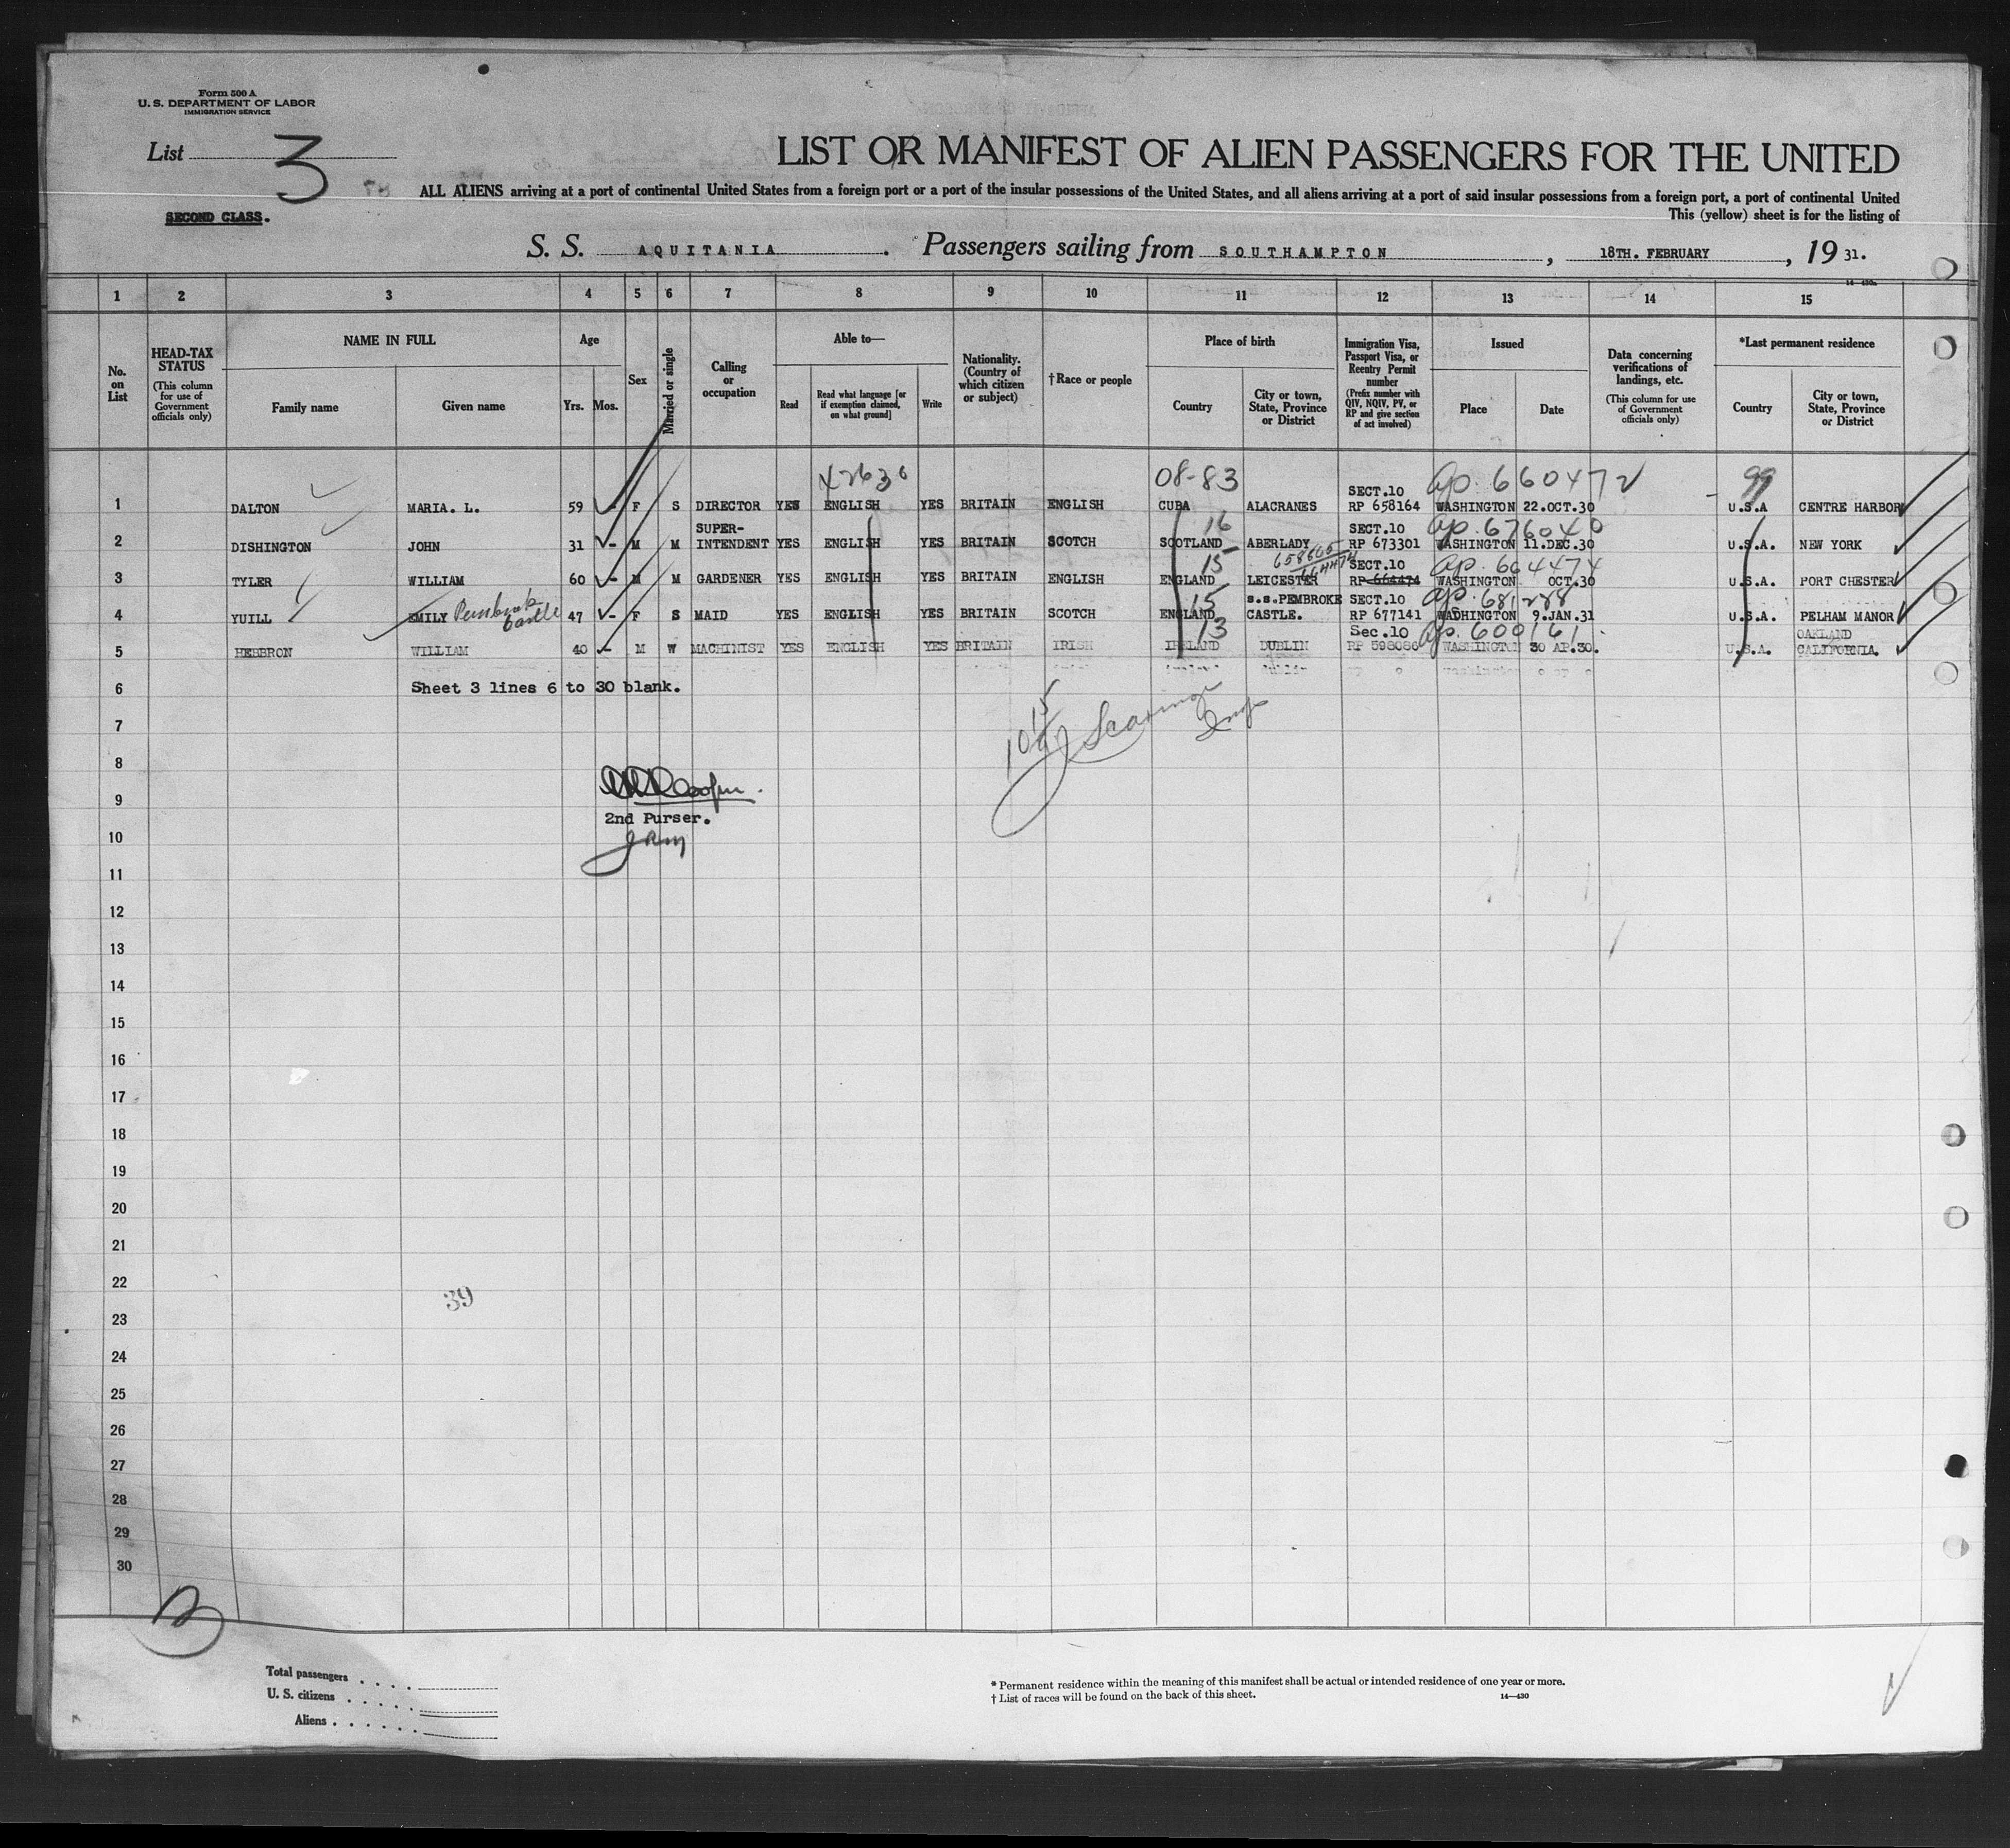 Form 500 A
U. S. DEPARTMENT OF LABOR
IMMIGRATION SERVICE
List 3
LIST OR MANIFEST OF ALIEN PASSENGERS FOR THE UNITED
ALL ALIENS arriving at a port of continental United States from a foreign port or a port of the insular possessions of the United States, and all aliens arriving at a port of said insular possessions from a foreign port, a port of continental United
This (yellow) sheet is for the listing of
SECOND CLASS.
S. S. AQUITANIA. Passengers sailing from SOUTHAMPTON, 18TH. FEBRUARY, 19 31.
14—430a
1 2 3 4 5 6 7 8 9 10 11 12 13 14 15
No. on List
HEAD-TAX STATUS (This column for use of Government officials only)
NAME IN FULL
Family name
Given name
Age
Yrs. Mos.
Sex
Married or single
Calling or occupation
Able to—
Read
Read what language [or if exemption claimed, on what ground]
Write
Nationality. (Country of which citizen or subject)
†Race or people
Place of birth
Country
City or town, State, Province or District
Immigration Visa, Passport Visa, or Reentry Permit number (Prefix number with QIV, NQIV, PV, or RP and give section of act involved)
Issued
Place
Date
Data concerning verifications of landings, etc. (This column for use of Government officials only)
*Last permanent residence
Country
City or town, State, Province or District
08-83 SECT.10 660472 99
1 DALTON MARIA. L. 59 - F S DIRECTOR YES ENGLISH YES BRITAIN ENGLISH CUBA ALACRANES RP 658164 WASHINGTON 22.OCT.30 U.S.A CENTRE HARBOR
SUPER- 16 SECT.10 676040
2 DISHINGTON JOHN 31 - M M INTENDENT YES ENGLISH YES BRITAIN SCOTCH SCOTLAND ABERLADY RP 673301 WASHINGTON 11.DEC.30 U.S.A. NEW YORK
15 658605 SECT.10 664474
3 TYLER WILLIAM 60 - M M GARDENER YES ENGLISH YES BRITAIN ENGLISH ENGLAND LEICESTER RP 664474 WASHINGTON OCT.30 U.S.A. PORT CHESTER
15 s.s.PEMBROKE SECT.10 681288
4 YUILL EMILY Pembroke Castle 47 - F S MAID YES ENGLISH YES BRITAIN SCOTCH ENGLAND CASTLE. RP 677141 WADHINGTON 9.JAN.31 U.S.A. PELHAM MANOR
13 Sec.10 600161 OAKLAND
5 HEBBRON WILLIAM 40 - M W MACHINIST YES ENGLISH YES BRITAIN IRISH IRELAND DUBLIN RP 598080 WASHINGTON 30 AP.30. U.S.A. CALIFORNIA.
6 Sheet 3 lines 6 to 30 blank.
7
8
9
2nd Purser.
10
11
12
13
14
15
16
17
18
19
20
21
22
39
23
24
25
26
27
28
29
30
Total passengers
U. S. citizens
Aliens
* Permanent residence within the meaning of this manifest shall be actual or intended residence of one year or more.
† List of races will be found on the back of this sheet.
14—430